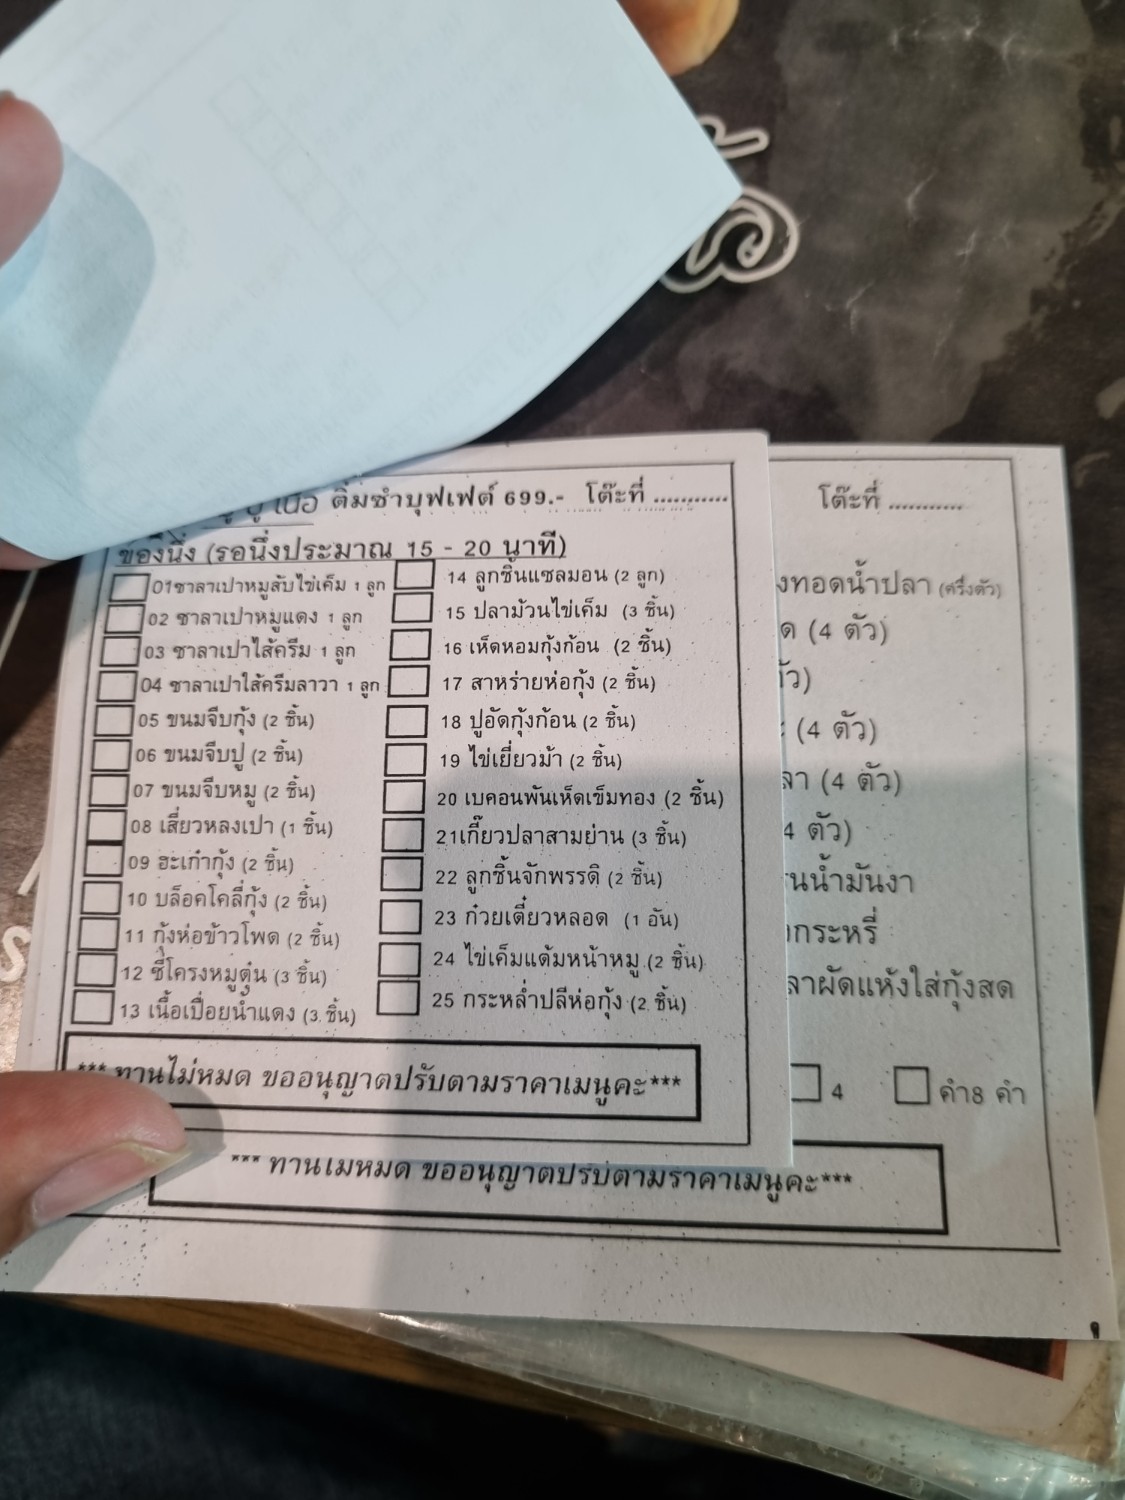 ติ่มซำบุฟเฟต์ 699.- โต๊ะที่ ...........
ของนึ่ง (รอนึ่งประมาณ 15 - 20 นาที)
01ซาลาเปาหมูสับไข่เค็ม 1 ลูก
02 ซาลาเปาหมูแดง 1 ลูก
03 ซาลาเปาไส้ครีม 1 ลูก
04 ซาลาเปาไส้ครีมลาวา 1 ลูก
05 ขนมจีบกุ้ง (2 ชิ้น)
06 ขนมจีบปู (2 ชิ้น)
07 ขนมจีบหมู (2 ชิ้น)
08 เสี่ยวหลงเปา (1 ชิ้น)
09 ฮะเก๋ากุ้ง (2 ชิ้น)
10 บล็อคโคลี่กุ้ง (2 ชิ้น)
11 กุ้งห่อข้าวโพด (2 ชิ้น)
12 ซี่โครงหมูตุ๋น (3 ชิ้น)
13 เนื้อเปื่อยน้ำแดง (3 ชิ้น)
14 ลูกชิ้นแซลมอน (2 ลูก)
15 ปลาม้วนไข่เค็ม (3 ชิ้น)
16 เห็ดหอมกุ้งก้อน (2 ชิ้น)
17 สาหร่ายห่อกุ้ง (2 ชิ้น)
18 ปูอัดกุ้งก้อน (2 ชิ้น)
19 ไข่เยี่ยวม้า (2 ชิ้น)
20 เบคอนพันเห็ดเข็มทอง (2 ชิ้น)
21เกี๊ยวปลาสามย่าน (3 ชิ้น)
22 ลูกชิ้นจักพรรดิ (2 ชิ้น)
23 ก๋วยเตี๋ยวหลอด (1 อัน)
24 ไข่เค็มแต้มหน้าหมู (2 ชิ้น)
25 กระหล่ำปลีห่อกุ้ง (2 ชิ้น)
*** ทานไม่หมด ขออนุญาตปรับตามราคาเมนูคะ***
โต๊ะที่ ...........
งทอดน้ำปลา (ครึ่งตัว)
ด (4 ตัว)
ัว)
(4 ตัว)
ลา (4 ตัว)
4 ตัว)
นน้ำมันงา
กระหรี่
ลาผัดแห้งใส่กุ้งสด
4
คำ8 คำ
*** ทานไม่หมด ขออนุญาตปรับตามราคาเมนูคะ***